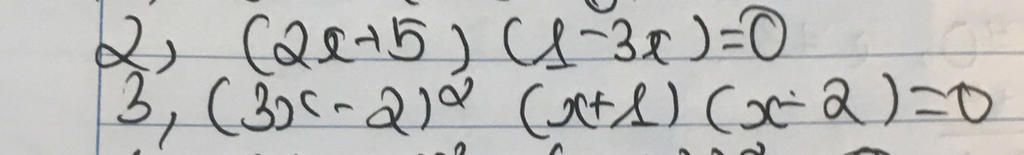 2, (2x+5) (1-3x)=0
3, (3x-2)² (x+1) (x-2)=0